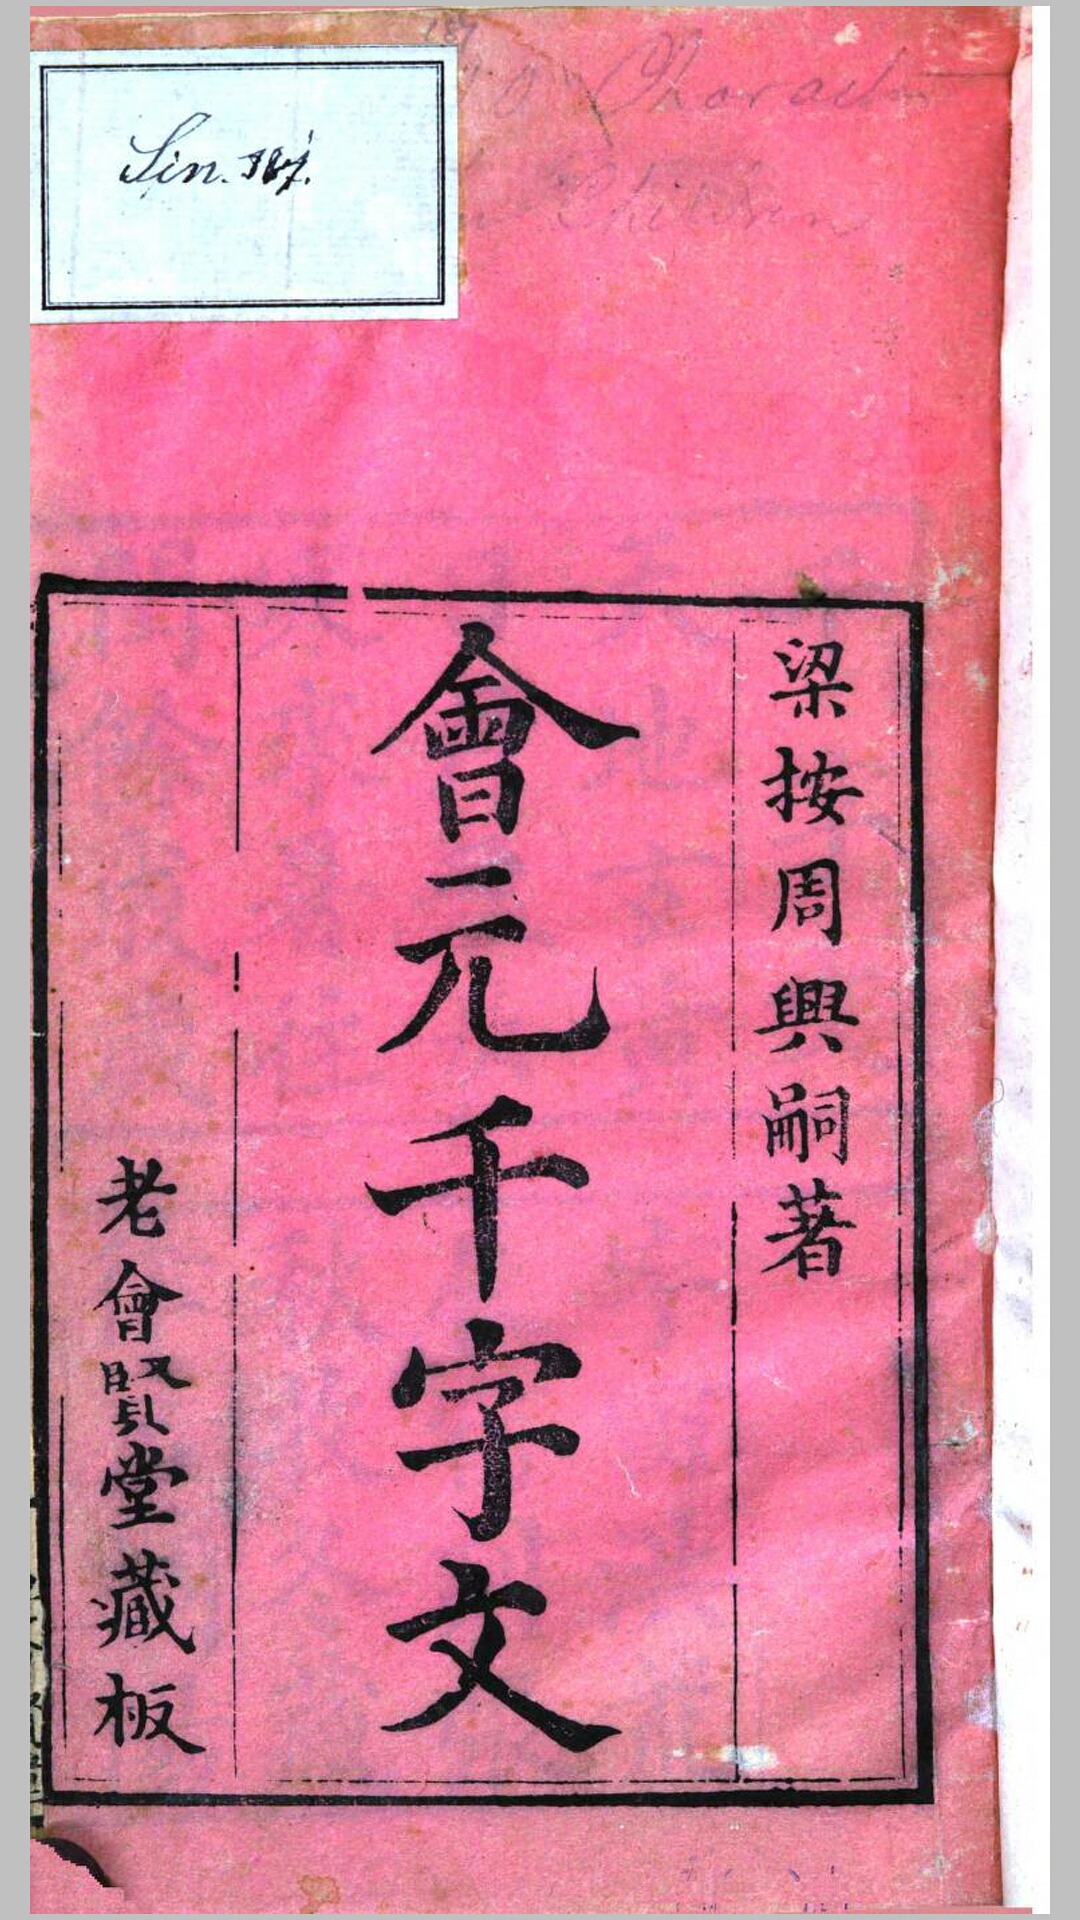 Sin. 187.
梁按周興嗣著
會元千字文
老會賢堂藏板